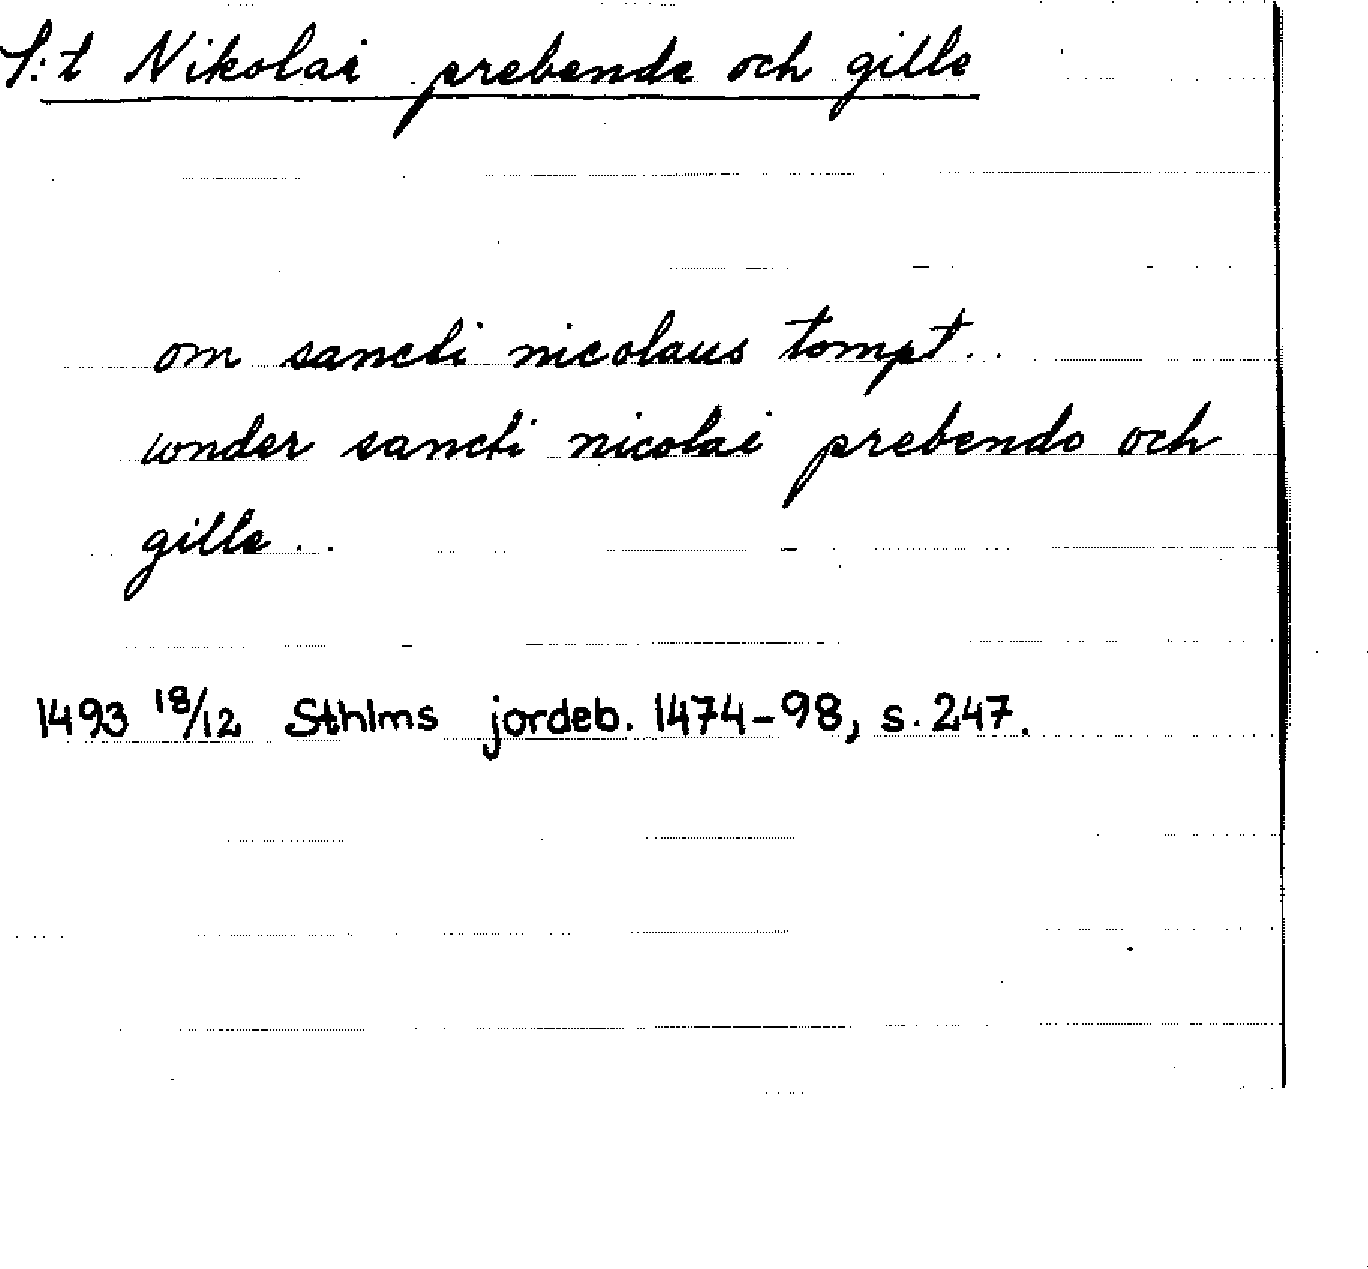 S:t Nikolai prebende och gille
om sancti nicolaus tompt..
wnder sancti nicolai prebendo och
gille..
1493 18/12 Sthlms jordeb. 1474-98, s. 247.